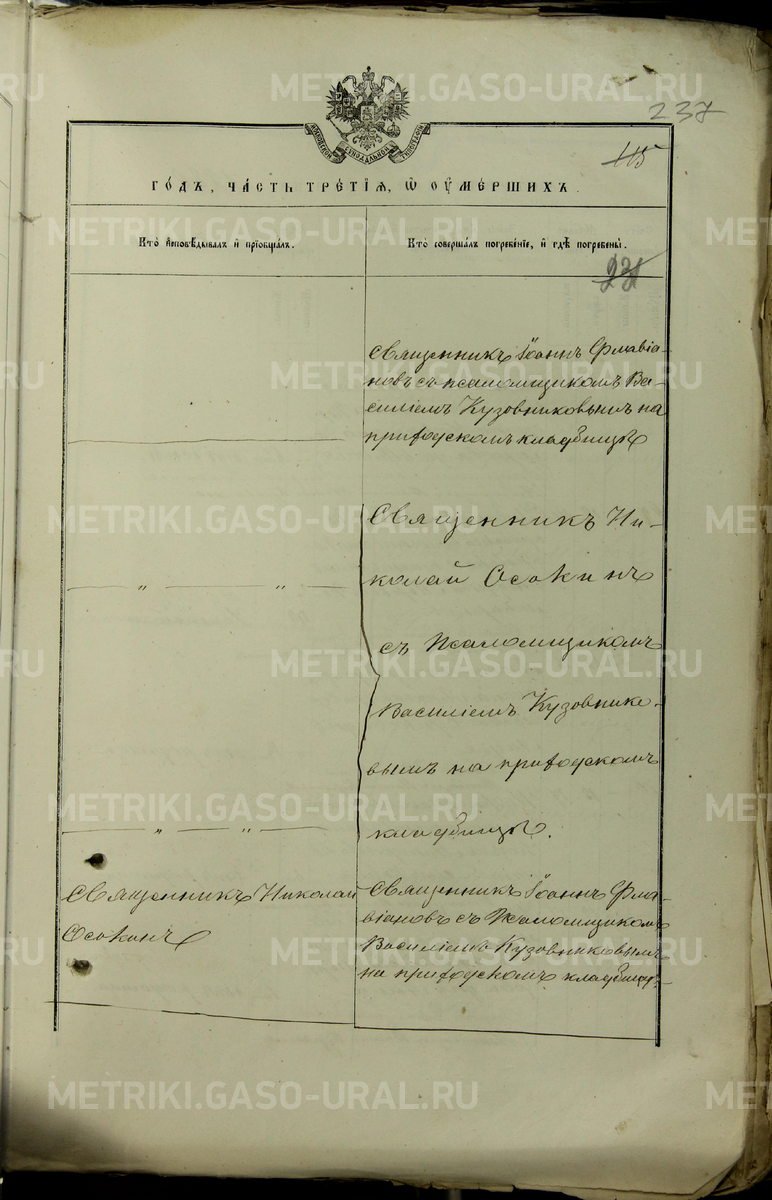 237
115
МОСКОВСКОЙ СѴНОДАЛЬНОЙ ТИПОГРАФІИ
ГО́ДЪ, ЧА́СТЬ ТРЕ́ТІЯ, Ѿ ОУМЕ́РШИХЪ.
Кто̀ исповѣ́дывалъ и҆ прїобща́лъ.
Кто̀ соверша́лъ погребе́нїе, и҆ гдѣ̀ погребены̀.
231
Священникъ Іоаннъ Флавіа-
новъ съ псаломщикомъ Ва-
силіемъ Кузовниковымъ на
приходскомъ кладбищѣ
Священникъ Ни-
— „ — „ —
колай Осокинъ
съ псаломщикомъ
Василіемъ Кузовнико-
вымъ на приходскомъ
— „ — „ —
кладбищѣ.
Священникъ Николай
Осокинъ
Священникъ Іоаннъ Фла-
віановъ съ псаломщикомъ
Василіемъ Кузовниковымъ
на приходскомъ кладбищѣ
METRIKI.GASO-URAL.RU